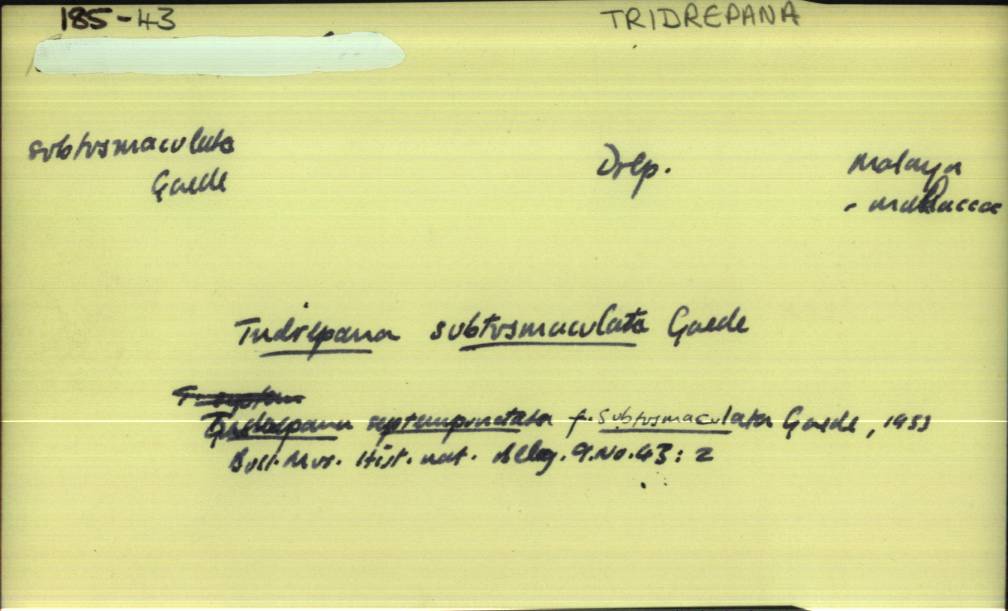 185-43
TRIDREPANA
subtusmaculata
Gaede
Drep.
Malaya
- moluccas
Tridrepana subtusmaculata Gaede
T. septem
Tridrepana septempunctata f. subtusmaculata Gaede, 1933
Bull. Mus. Hist. nat. Belg. 9. No. 43: 2